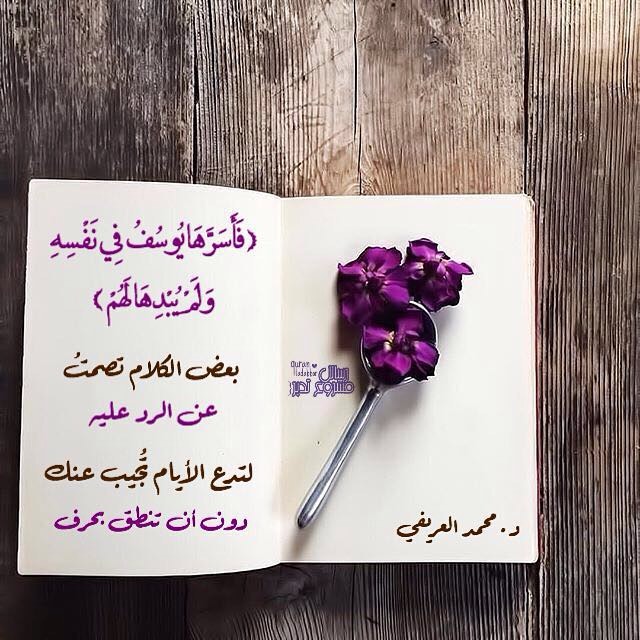 ﴿فَأَسَرَّهَا يُوسُفُ فِي نَفْسِهِ
وَلَمْ يُبْدِهَا لَهُمْ﴾
بعض الكلام تصمتُ
عن الرد عليه
لتدع الأيام تُجيب عنك
دون أن تنطق بحرف
Quran
Tadabbor
رسائل
مشروع تدبر
د. محمد العريفي